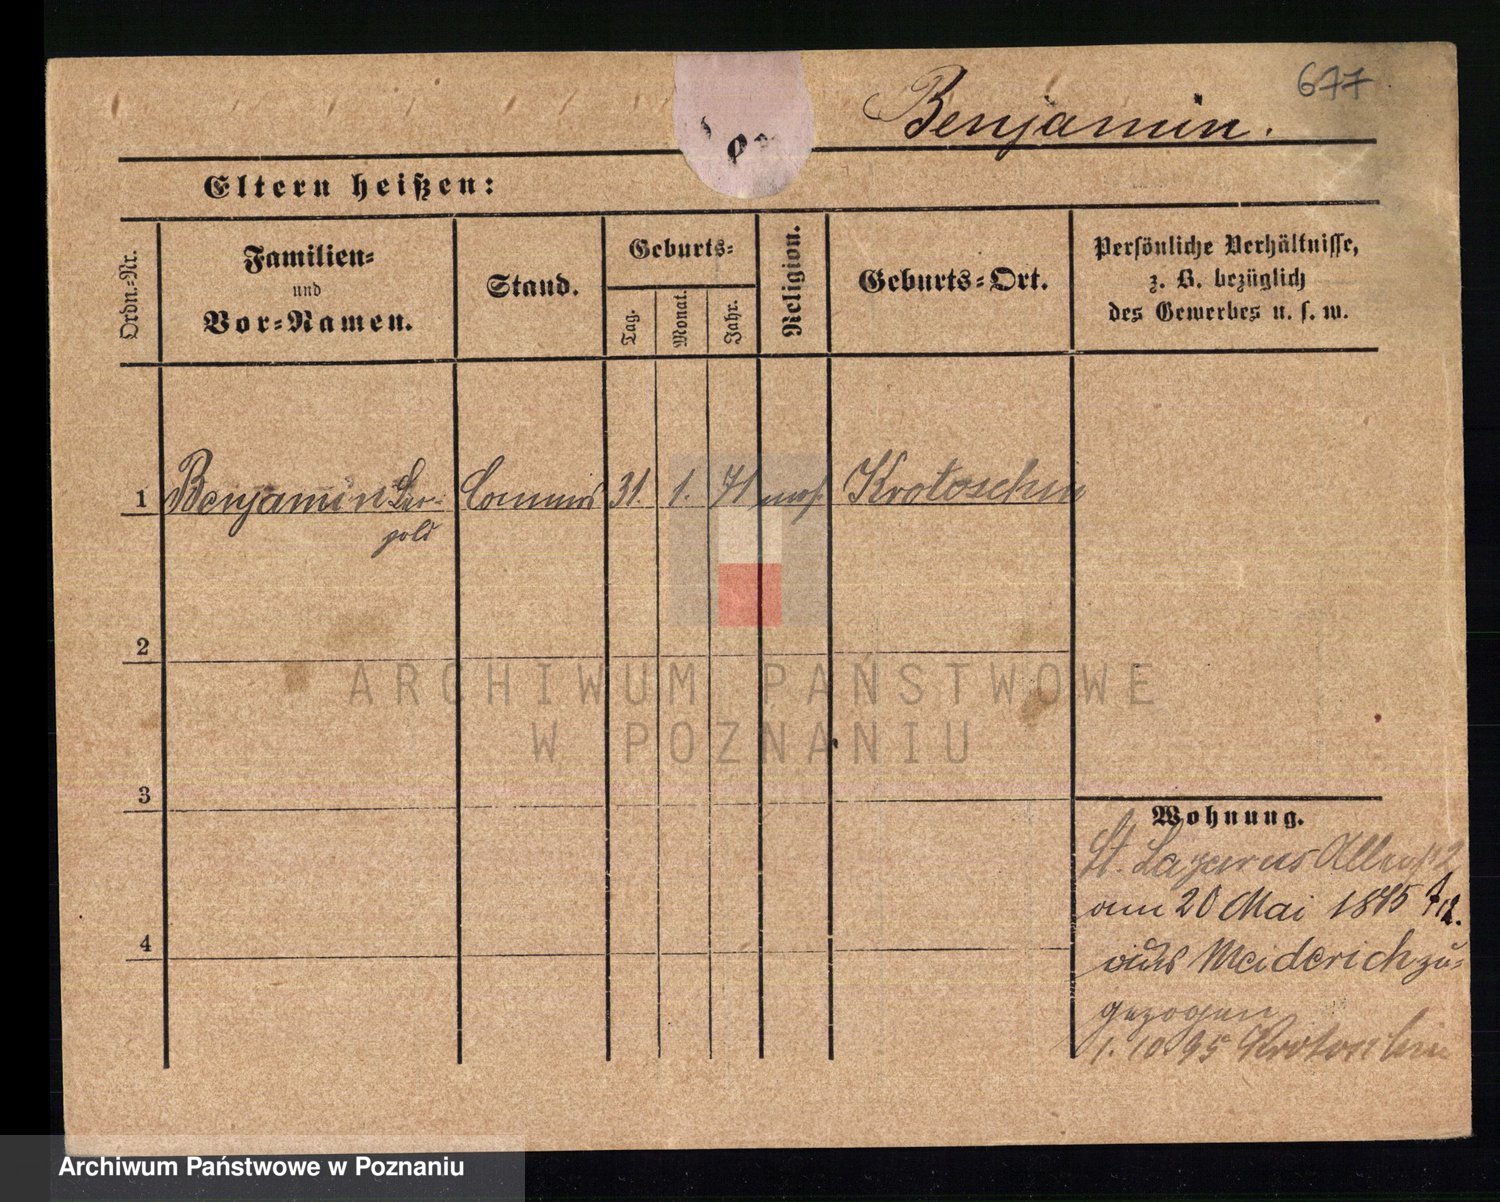 677
Benjamin.
Eltern heißen:
Ordn.-Nr.
Familien-
und
Vor-Namen.
Stand.
Geburts-
Tag.
Monat.
Jahr.
Religion.
Geburts-Ort.
Persönliche Verhältnisse,
z. B. bezüglich
des Gewerbes u. s. w.
1 Benjamin Leo- Commis 31. 1. 71 mos. Krotoschin
pold
2
3
4
Wohnung.
St. Lazarus
am 20 Mai 1895
aus Meiderich zu-
gezogen
1. 10. 95 Krotoschin
ARCHIWUM PAŃSTWOWE
W POZNANIU
Archiwum Państwowe w Poznaniu